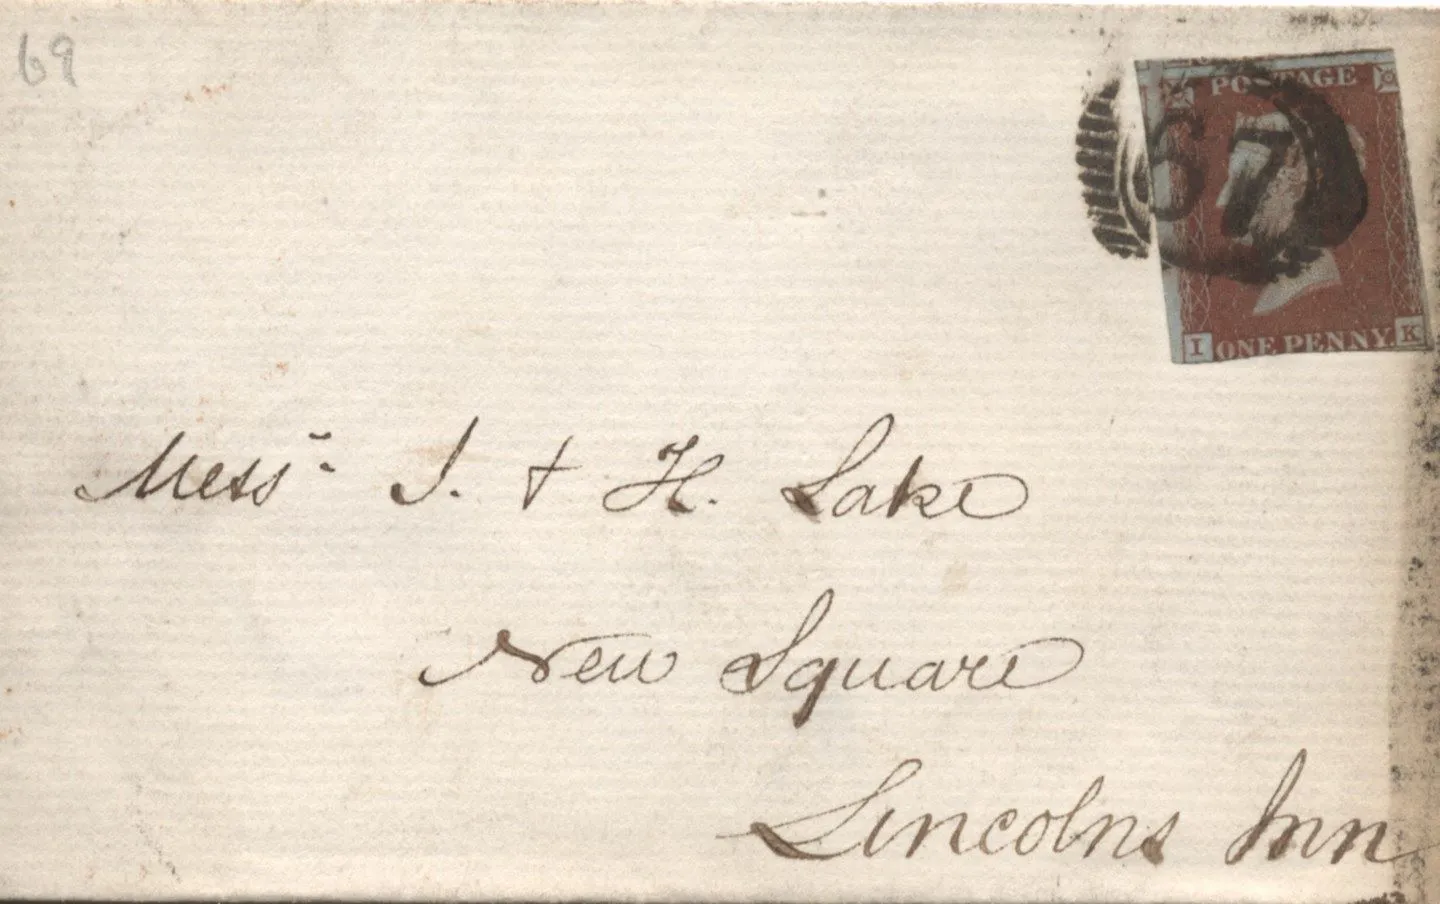 69
POSTAGE
67
I ONE PENNY. K
Messrs. J. & H. Lake
New Square
Lincolns Inn